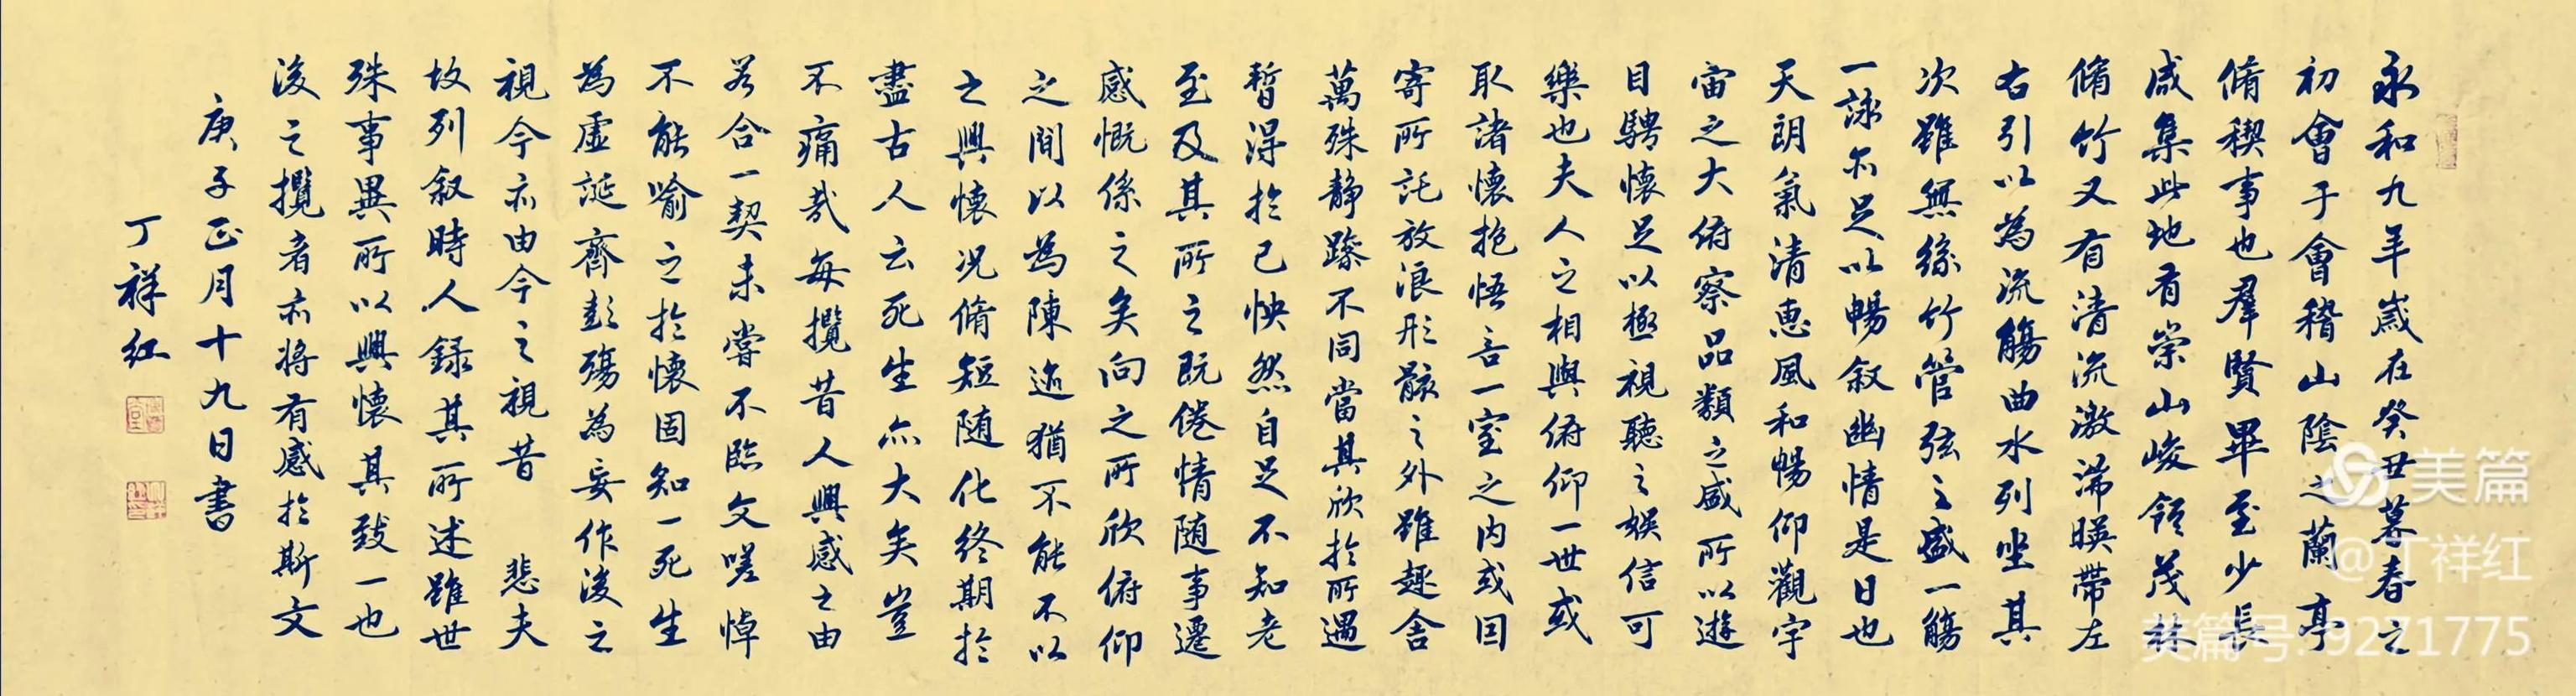 永和九年歲在癸丑暮春之
初會于會稽山陰之蘭亭
脩稧事也羣賢畢至少長
咸集此地有崇山峻領茂林
脩竹又有清流激湍暎帶左
右引以為流觴曲水列坐其
次雖無絲竹管弦之盛一觴
一詠亦足以暢叙幽情是日也
天朗氣清惠風和暢仰觀宇
宙之大俯察品類之盛所以遊
目騁懷足以極視聽之娛信可
樂也夫人之相與俯仰一世或
取諸懷抱悟言一室之內或因
寄所託放浪形骸之外雖趣舍
萬殊靜躁不同當其欣於所遇
暫得於己怏然自足不知老
至及其所之既倦情随事遷
感慨係之矣向之所欣俯仰
之間以為陳迹猶不能不以
之興懷况脩短随化終期於
盡古人云死生亦大矣豈
不痛哉每攬昔人興感之由
若合一契未嘗不臨文嗟悼
不能喻之於懷固知一死生
為虛誕齊彭殤為妄作後之
視今亦由今之視昔 悲夫
故列叙時人録其所述雖世
殊事異所以興懷其致一也
後之攬者亦將有感於斯文
庚子正月十九日書
丁祥红
美篇
@丁祥红
美篇号:9271775